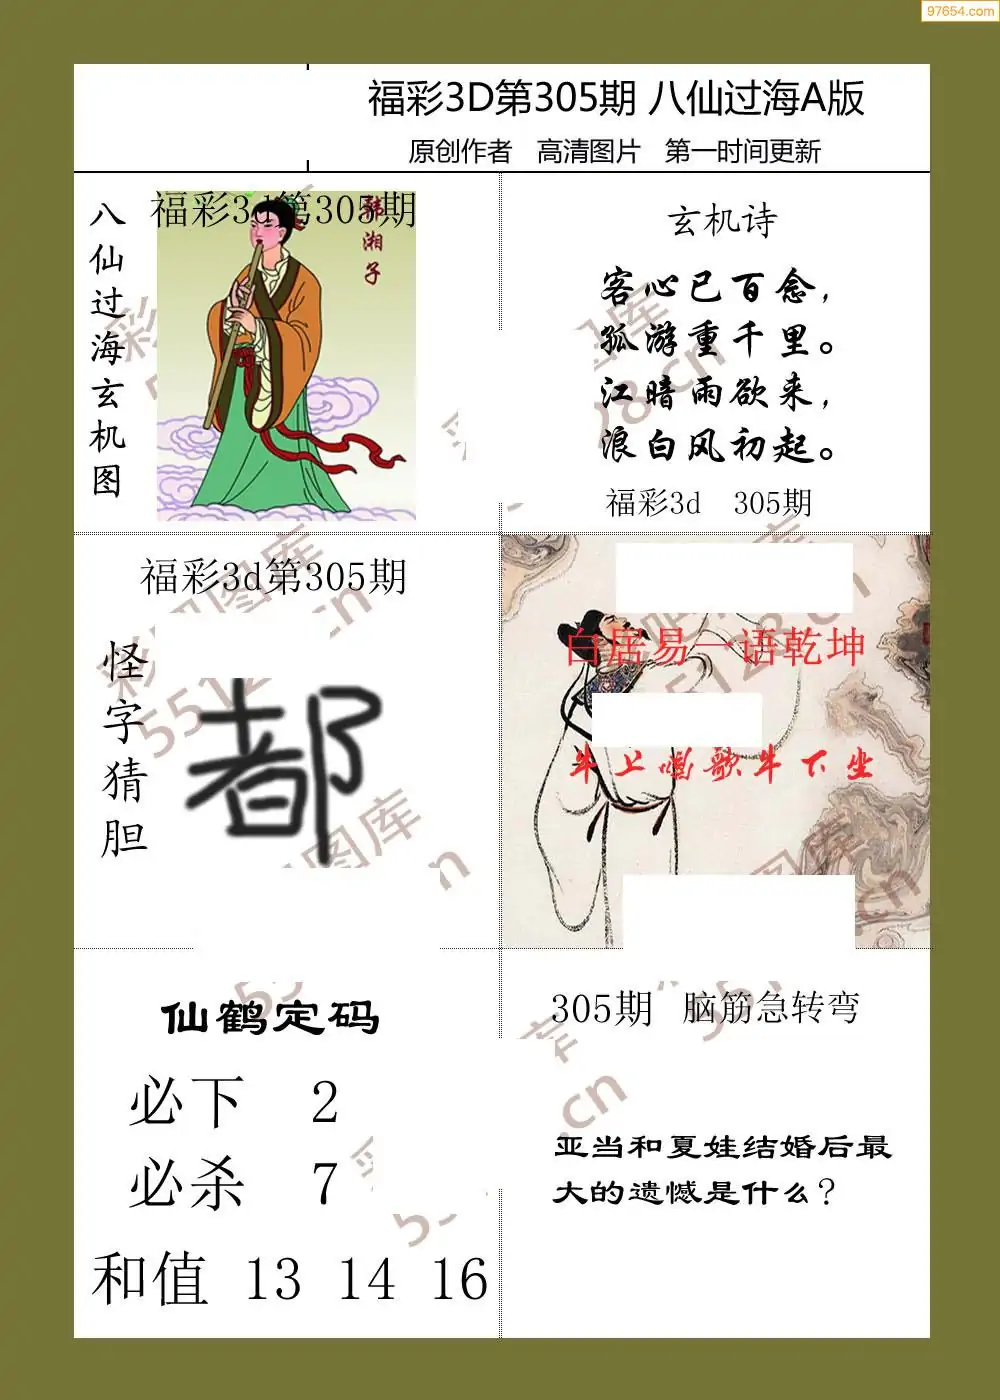 97654.com
福彩3D第305期 八仙过海A版
原创作者 高清图片 第一时间更新
八仙过海玄机图
福彩3d第305期
韩湘子
玄机诗
客心已百念，
孤游重千里。
江暗雨欲来，
浪白风初起。
福彩3d 305期
福彩3d第305期
怪字猜胆
都
白居易一语乾坤
牛上唱歌牛下坐
仙鹤定码
必下 2
必杀 7
和值 13 14 16
305期 脑筋急转弯
亚当和夏娃结婚后最
大的遗憾是什么？